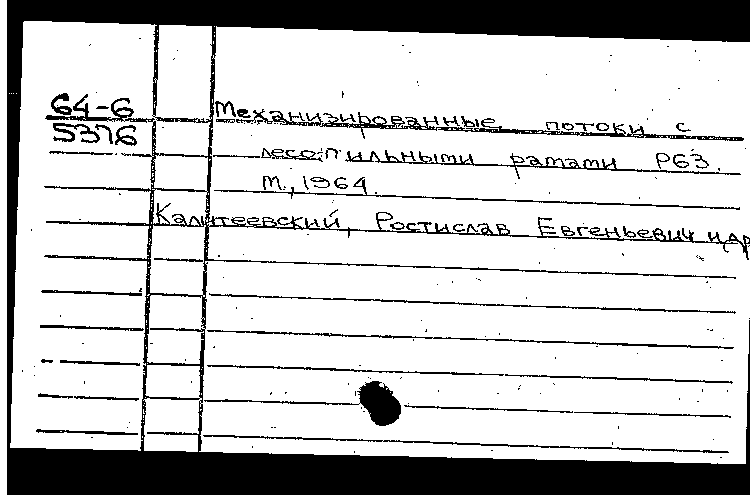 64-6
5376
Механизированные потоки с
лесопильными рамами Р63.
М., 1964.
Калитеевский, Ростислав Евгеньевич и др